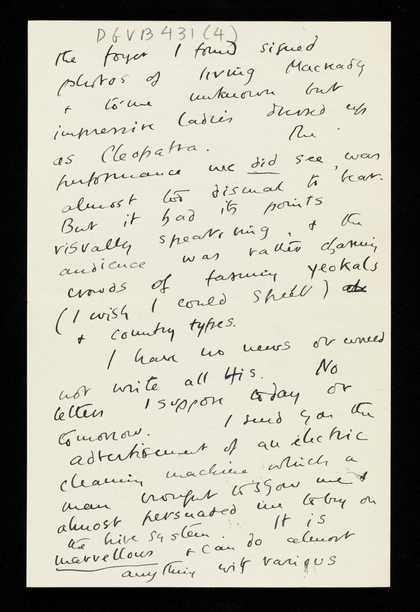 DGVB 431 (4)
the foyer I found signed
photos of living Mackady
& to me unknown but
impressive ladies dressed up
as Cleopatra. The
performance we did see, was
almost too dismal to bear.
But it had its points
visually speaking, & the
audience was rather charming
crowds of farming yeokals
(I wish I could spell)
& country types.
I have no news or would
not write all this. No
letters I suppose today or
tomorrow. I send you the
advertisement of an electric
cleaning machine which a
man brought to show me &
almost persuaded me to buy on
the hire system. It is
marvellous & can do almost
anything with various